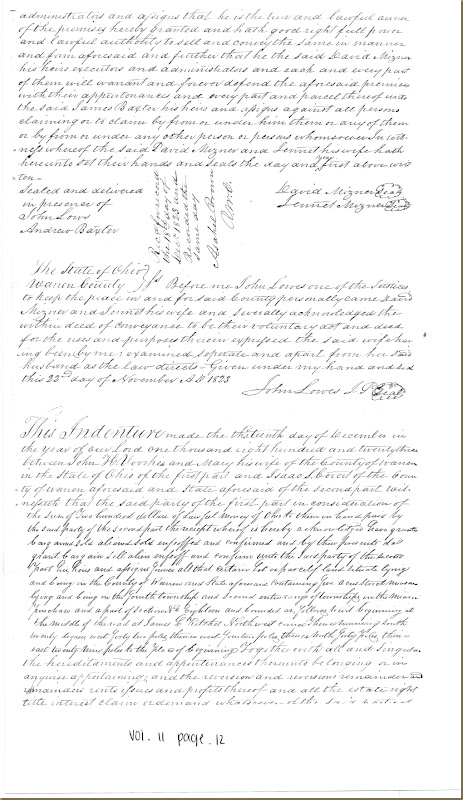 administrators and assigns that he is the true and lawful owner
of the premises hereby granted and hath good right full power
and lawful authority to sell and convey the same in manner
and form aforesaid and further that he the said David Mizner
his heirs executors and administrators and each and every part
of them will warrant and forever defend the aforesaid premises
with their appertenances and every part and parcel thereof unto
the said James Baxter his heirs and assigns against all persons
claiming or to claim by from or under him them or any of them
or by from or under any other person or persons whomsoever In wit-
ness whereof the said David Mizner and Jennet his wife hath
hereunto set their hands and seals the day and year first above writ
-ten-
Sealed and delivered
in presence of
John Lowes
Andrew Baxter
Recd & recorded
the day of
Decr 1823 and
Recorded
same day
Mahel Brown
David Mizner Seal
Jennet Mizner Seal
The State of Ohio
Warren County } ss Before me John Lowes one of the Justices
to keep the peace in and for said County personally came David
Mizner and Jennet his wife and severally acknowledged the
within deed of conveyance to be their voluntary act and deed
for the uses and purposes therein expressed the said wife hav
ing been by me examined seperate and apart from her said
husband as the law directs Given under my hand and seal
this 22nd day of November AD 1823
John Lowes J.P. Seal
This Indenture made the thirteenth day of December in
the year of our Lord one thousand eight hundred and twenty three
between John H. Voorhes and Mary his wife of the County of Warren
in the State of Ohio of the first part and Isaac S. of the Coun
ty of Warren aforesaid and State aforesaid of the second part wit-
nesseth that the said party of the first part in consideration of
the sum of two hundred dollars of lawful money of the to them in hand paid by
the said party of the second part the receipt whereof is hereby acknowledged have granted
bargained sold aliened enfeoffed and confirmed and by these presents do
grant bargain sell alien enfeoff and confirm unto the said party of the second
part his heirs and assigns forever all that certain lot or parcel of land situate lying
and being in the County of Warren and State aforesaid containing five acres
lying and being in the fourth township and second entire range of townships in the Miami
purchase and a part of section No Eighteen and bounded as follows to wit beginning at
the middle of the road at James Northwest corner thence running south
degrees west forty two poles thence west fourteen poles thence North forty poles thence
east twenty nine poles to the place of beginning Together with all and singular
the hereditaments and appertenances thereunto belonging or in
anywise appertaining and the revision and revisions remainder and
remainders rents issues and profits thereof and all the estate right
title interest claim or demand whatsoever of the said parties
Vol. 11 page. 12